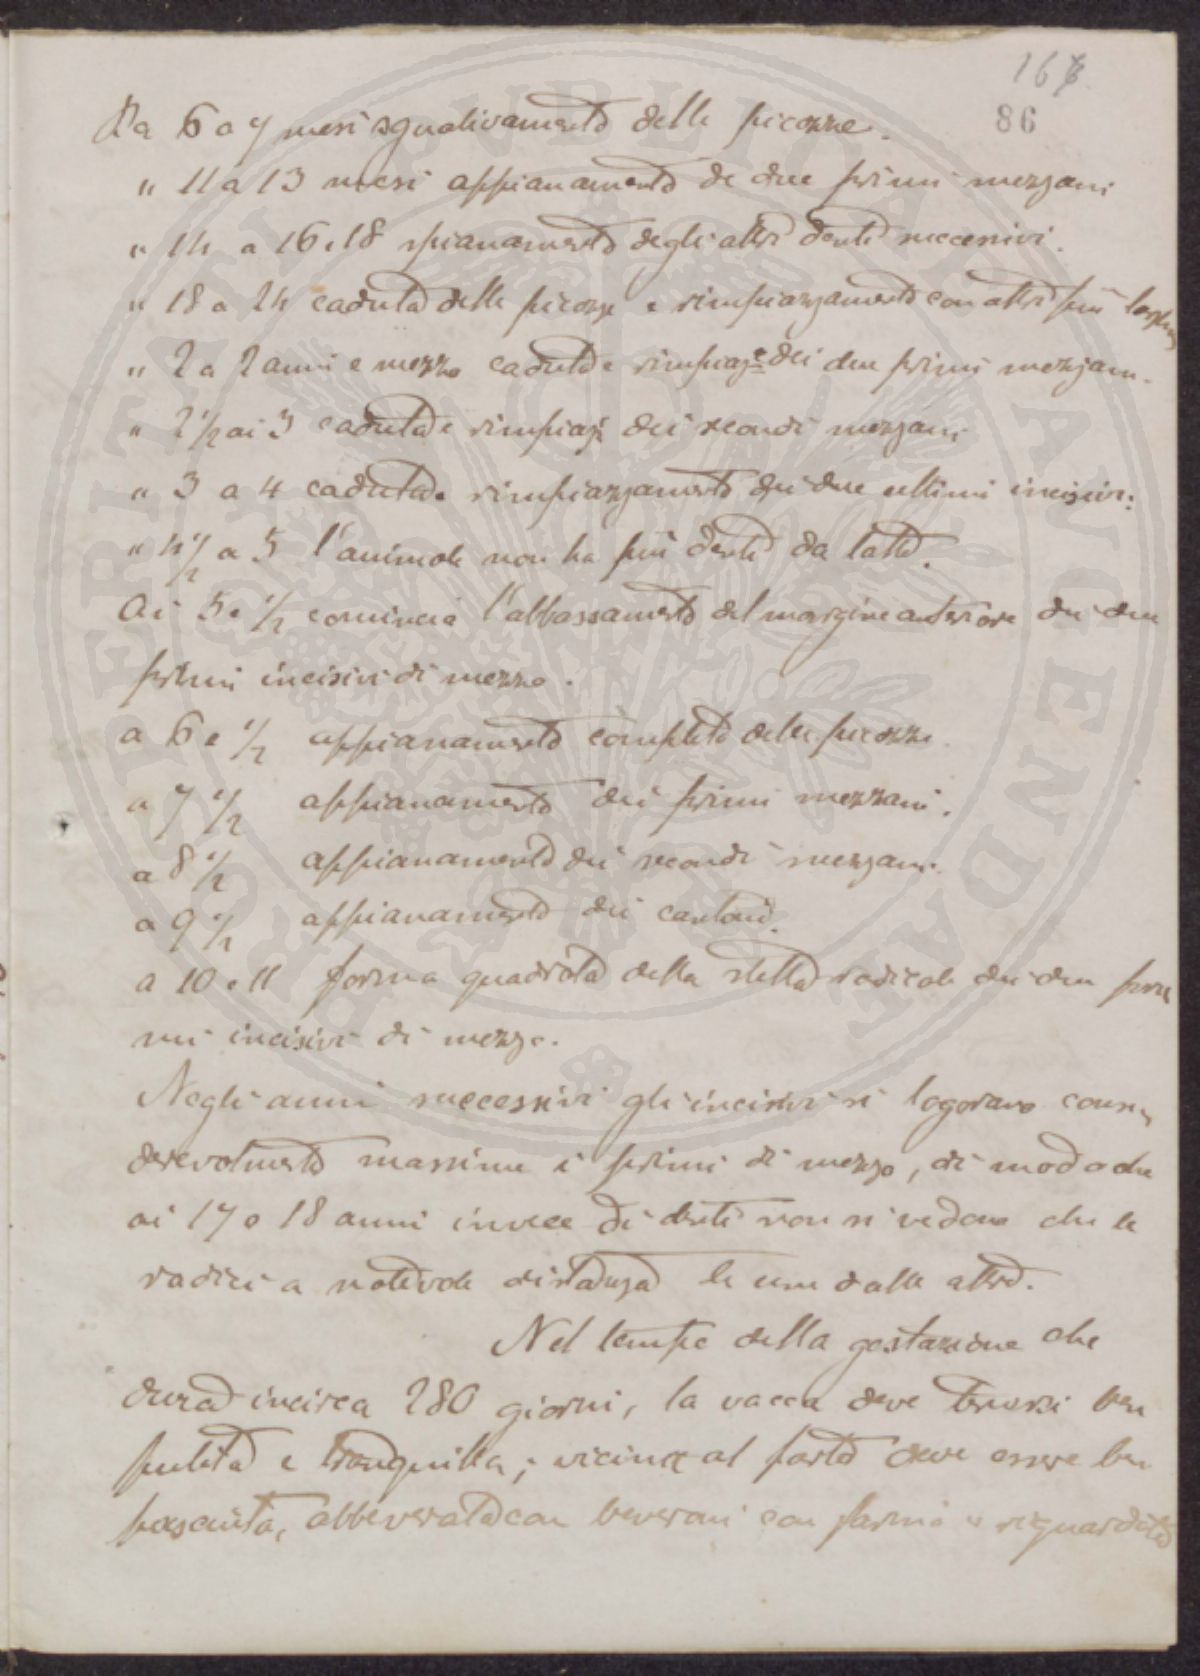 167
86
Da 6 a 7 mesi sgualivamento delle picozze.
" 11 a 13 mesi appianamento de due primi mezzani
" 14 a 16 e 18 spianamento degli altri denti successivi.
" 18 a 24 caduta delle picozze e rimpiazzamento con altri più larghi
" 2 a 2 anni e mezzo caduta e rimpiazo dei due primi mezzani.
" 2 1/2 ai 3 caduta e rimpiazo dei secondi mezzani
" 3 a 4 caduta e rimpiazzamento dei due ultimi incisivi.
" 4 1/2 a 5 l'animale non ha più denti da latte.
Ai 5 e 1/2 comincia l'abbassamento del margine anteriore dei due
primi incisivi di mezzo.
a 6 e 1/2 appianamento completo delle picozze.
a 7 1/2 appianamento dei primi mezzani.
a 8 1/2 appianamento dei secondi mezzani.
a 9 1/2 appianamento dei cantoni.
a 10 e 11 forma quadrata della stella radicale dei due pri
mi incisivi di mezzo.
Negli anni successivi gli incisivi si logorano consi
derevolmente massime i primi di mezzo, di modo che
ai 17 o 18 anni invece di denti non si vedono che le
radici a notevole distanza le une dalle altre.
Nel tempo della gestazione che
dura incirca 280 giorni, la vacca deve tenersi ben
pulita e tranquilla; vicina al parto deve essere ben
pasciuta, abbeverata con beveroni con farina e riguardata
PROSPERITATI PVBLICAE AVGENDAE